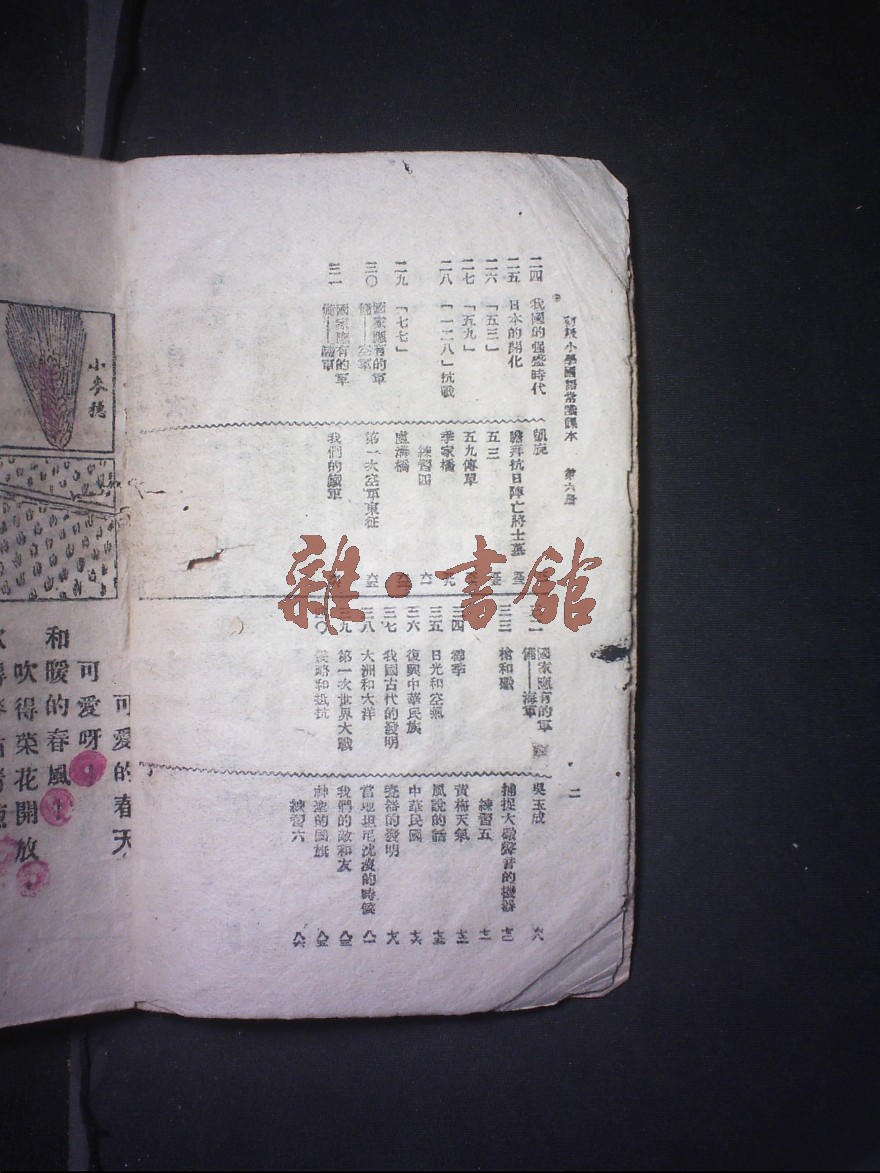 初級小學國語常識課本 第六册
二
二四 我國的强盛時代
二五 日本的開化
二六 「五三」
二七 「五九」
二八 「一二八」抗戰
二九 「七七」
三〇 國家應有的軍備——空軍
三一 國家應有的軍備——陸軍
凱旋
瞻拜抗日陣亡將士墓
五三
五九傳單
季家橋
練習四 六一
盧溝橋
第一次空軍東征
我們的鐵軍
國家應有的軍備——海軍
三三 槍和礮
三四 霉季
三五 日光和空氣
三六 復興中華民族
三七 我國古代的發明
三八 大洲和大洋
三九 第一次世界大戰
四〇 侵略和抵抗
吳玉成 六八
捕捉大礮聲音的機器
練習五
黃梅天氣
風說的話
中華民國
瓷器的發明 七八
當地坦尼沈沒的時候 八一
我們的敵和友
神速的國旗
練習六 八六
雜·書館
小麥穗
可愛的春天
可愛呀！
和暖的春風！
吹得菜花開放，